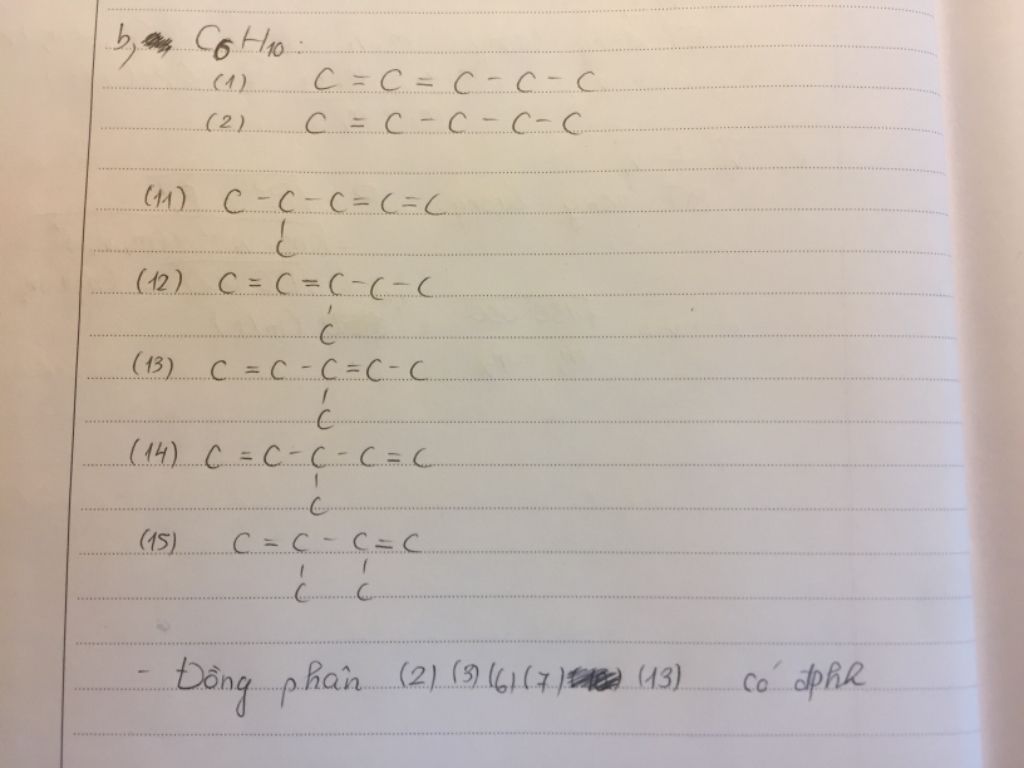 b, C6H10:
(1) C = C = C - C - C
(2) C = C - C - C - C
(11) C - C - C = C = C
C
(12) C = C = C - C - C
C
(13) C = C - C = C - C
C
(14) C = C - C - C = C
C
(15) C = C - C = C
C C
- Đồng phân (2) (3) (6) (7) (13) có đphh